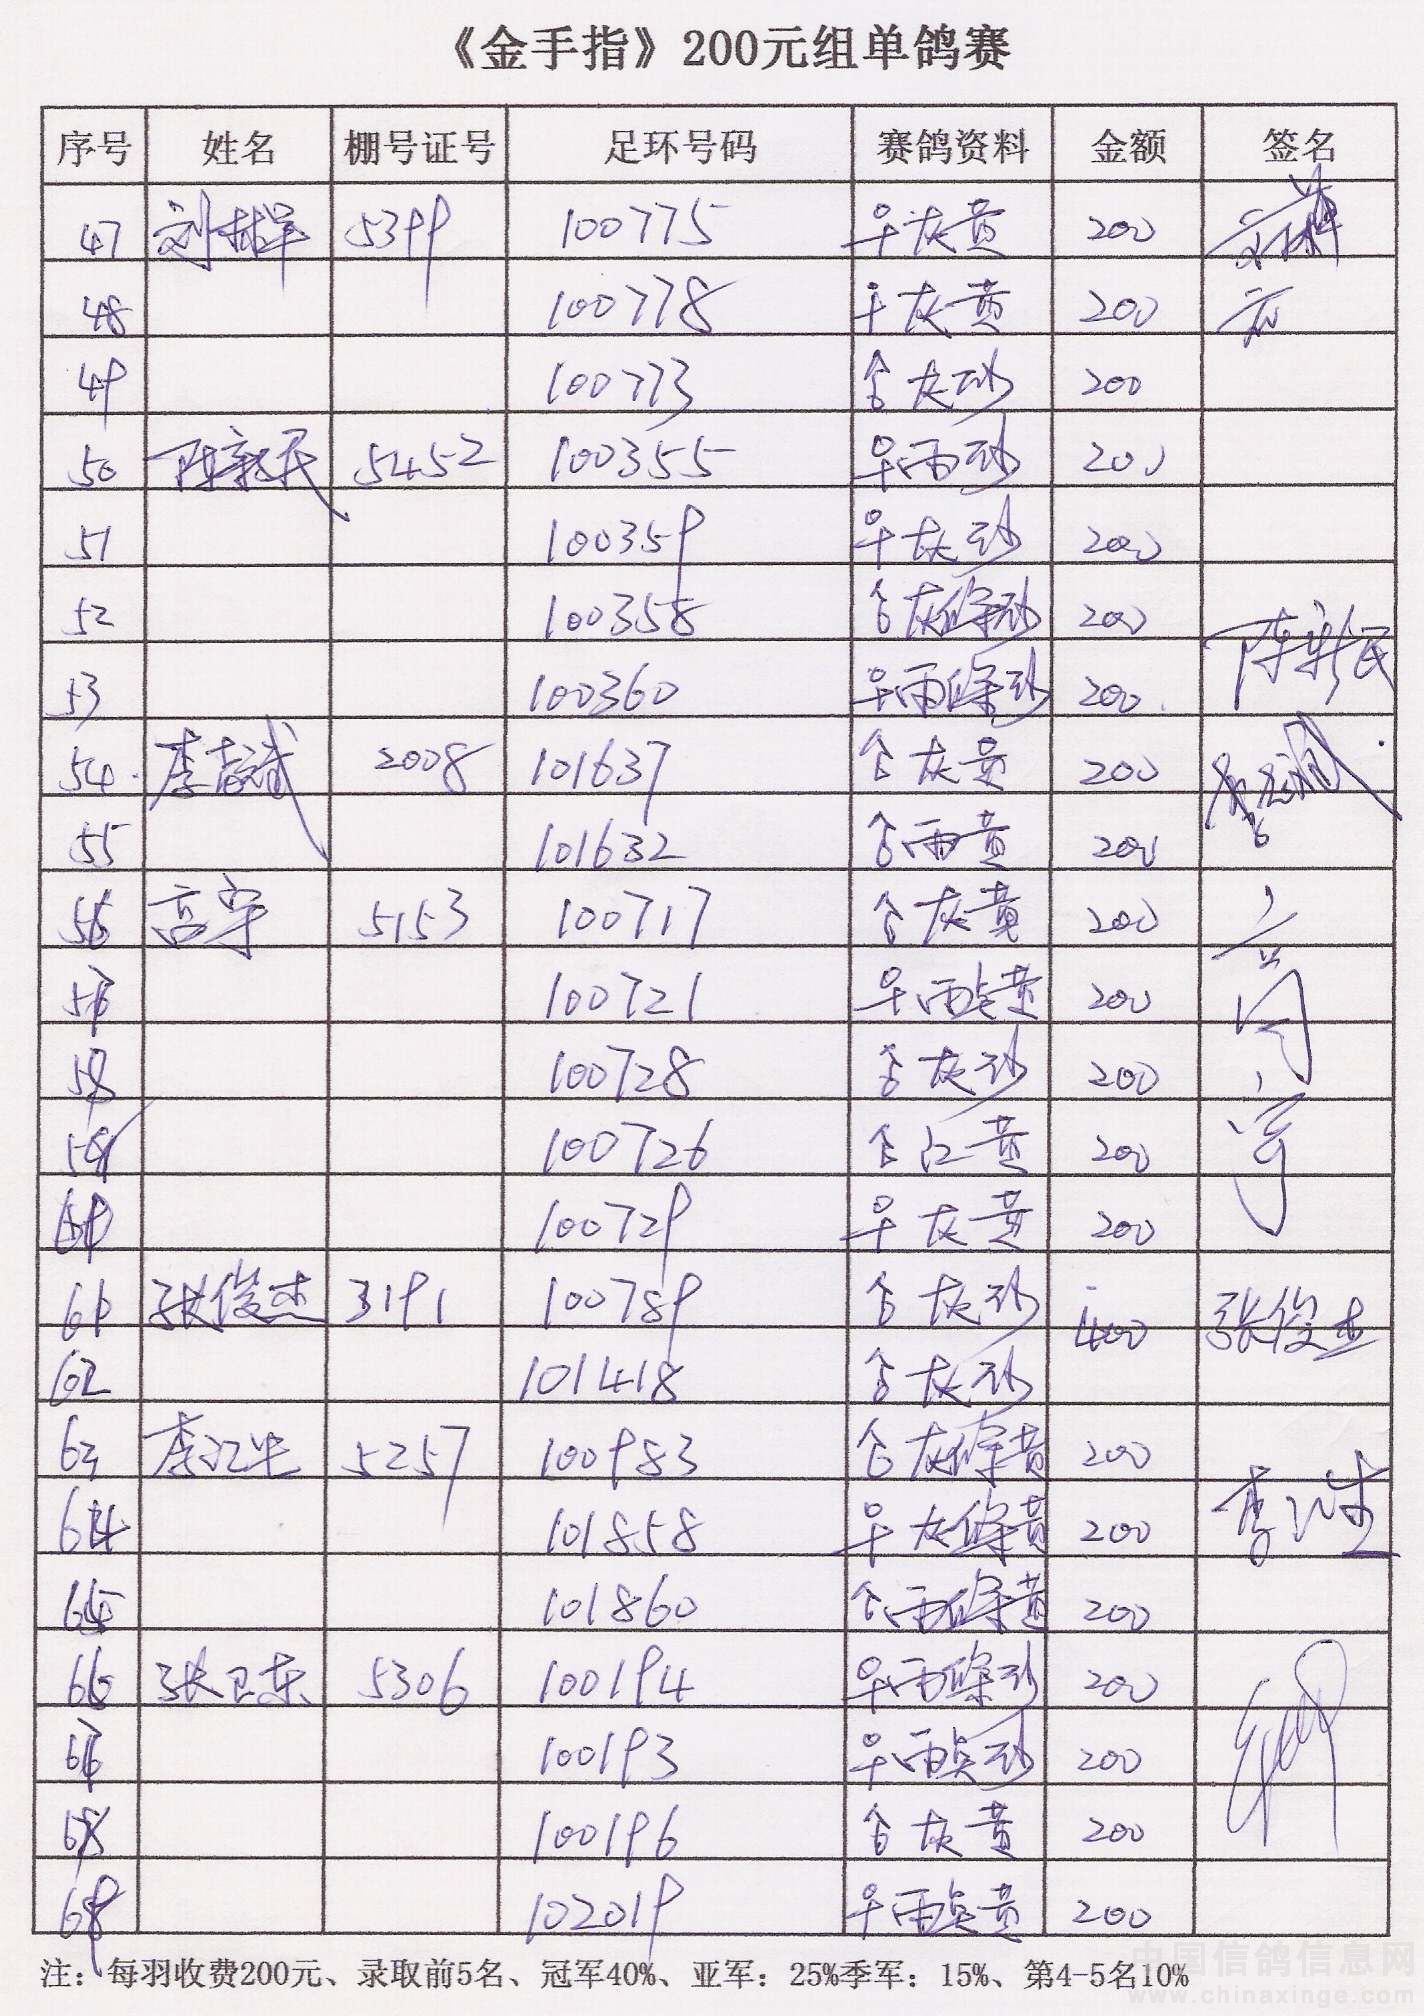 《金手指》200元组单鸽赛
序号 姓名 棚号证号 足环号码 赛鸽资料 金额 签名
47 刘 5399 100775 灰黄 200
48 100778 灰黄 200
49 100773 灰砂 200
50 陈新民 5452 100355 雨砂 200
51 100359 灰砂 200
52 100358 灰條砂 200
53 100360 雨條砂 200 陈新民
54 李志斌 2008 101637 灰黄 200
55 101632 雨黄 200
56 高宇 5153 100717 灰黄 200 高宇
57 100721 雨点黄 200
58 100728 灰砂 200
59 100726 红黄 200
60 100729 灰黄 200
61 张俊杰 3191 100789 灰砂 400 张俊杰
62 101418 灰砂
63 李 5257 100983 灰條黄 200
64 101858 灰條黄 200
65 101860 雨條黄 200
66 张卫东 5306 100194 雨條砂 200
67 100193 雨点砂 200
68 100196 灰黄 200
69 102019 雨点黄 200
注：每羽收费200元、录取前5名、冠军40%、亚军：25%季军：15%、第4-5名10%
中国信鸽信息网
www.chinaxinge.com